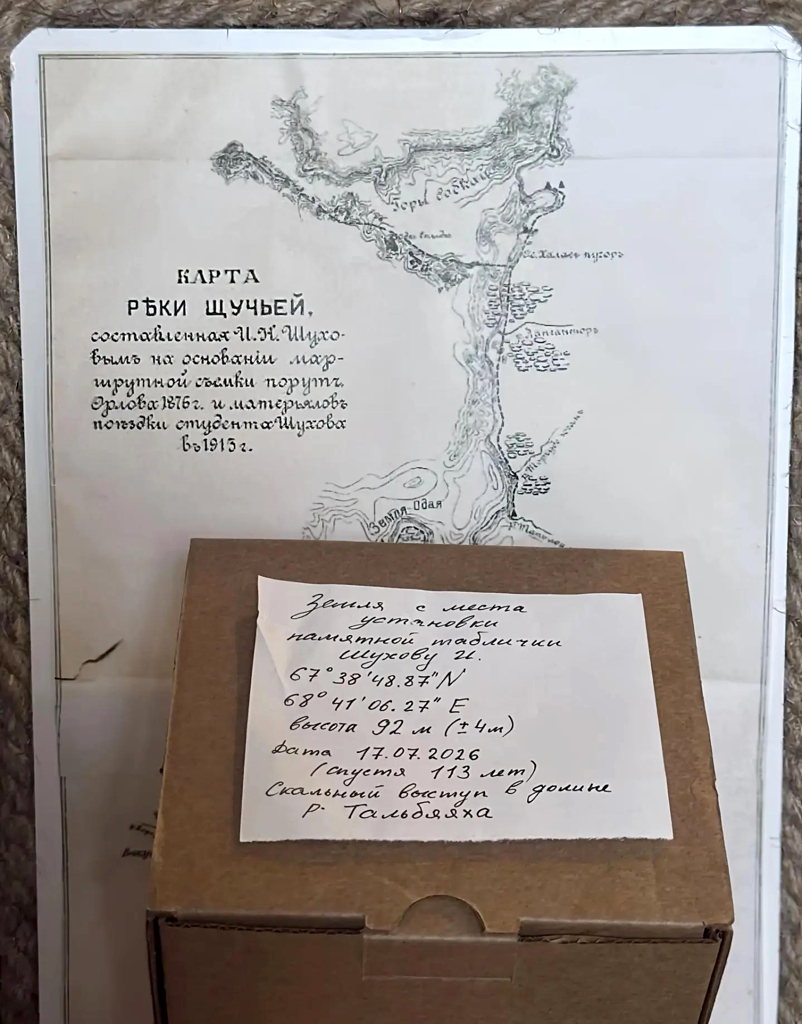 КАРТА
РѢКИ ЩУЧЬЕЙ,
составленная И. Н. Шухо-
вымъ на основаніи мар-
шрутной съемки поруч.
Орлова 1876 г. и матерьяловъ
поѣздки студента Шухова
въ 1913 г.
Горы Собкай
Хал пугоръ
Земля Одая
Земля с места
установки
памятной таблички
Шухову И.
67° 38' 48.87" N
68° 41' 06.27" E
высота 92 м (±4м)
Дата 17.07.2026
(спустя 113 лет)
Скальный выступ в долине
р. Тальбяяха